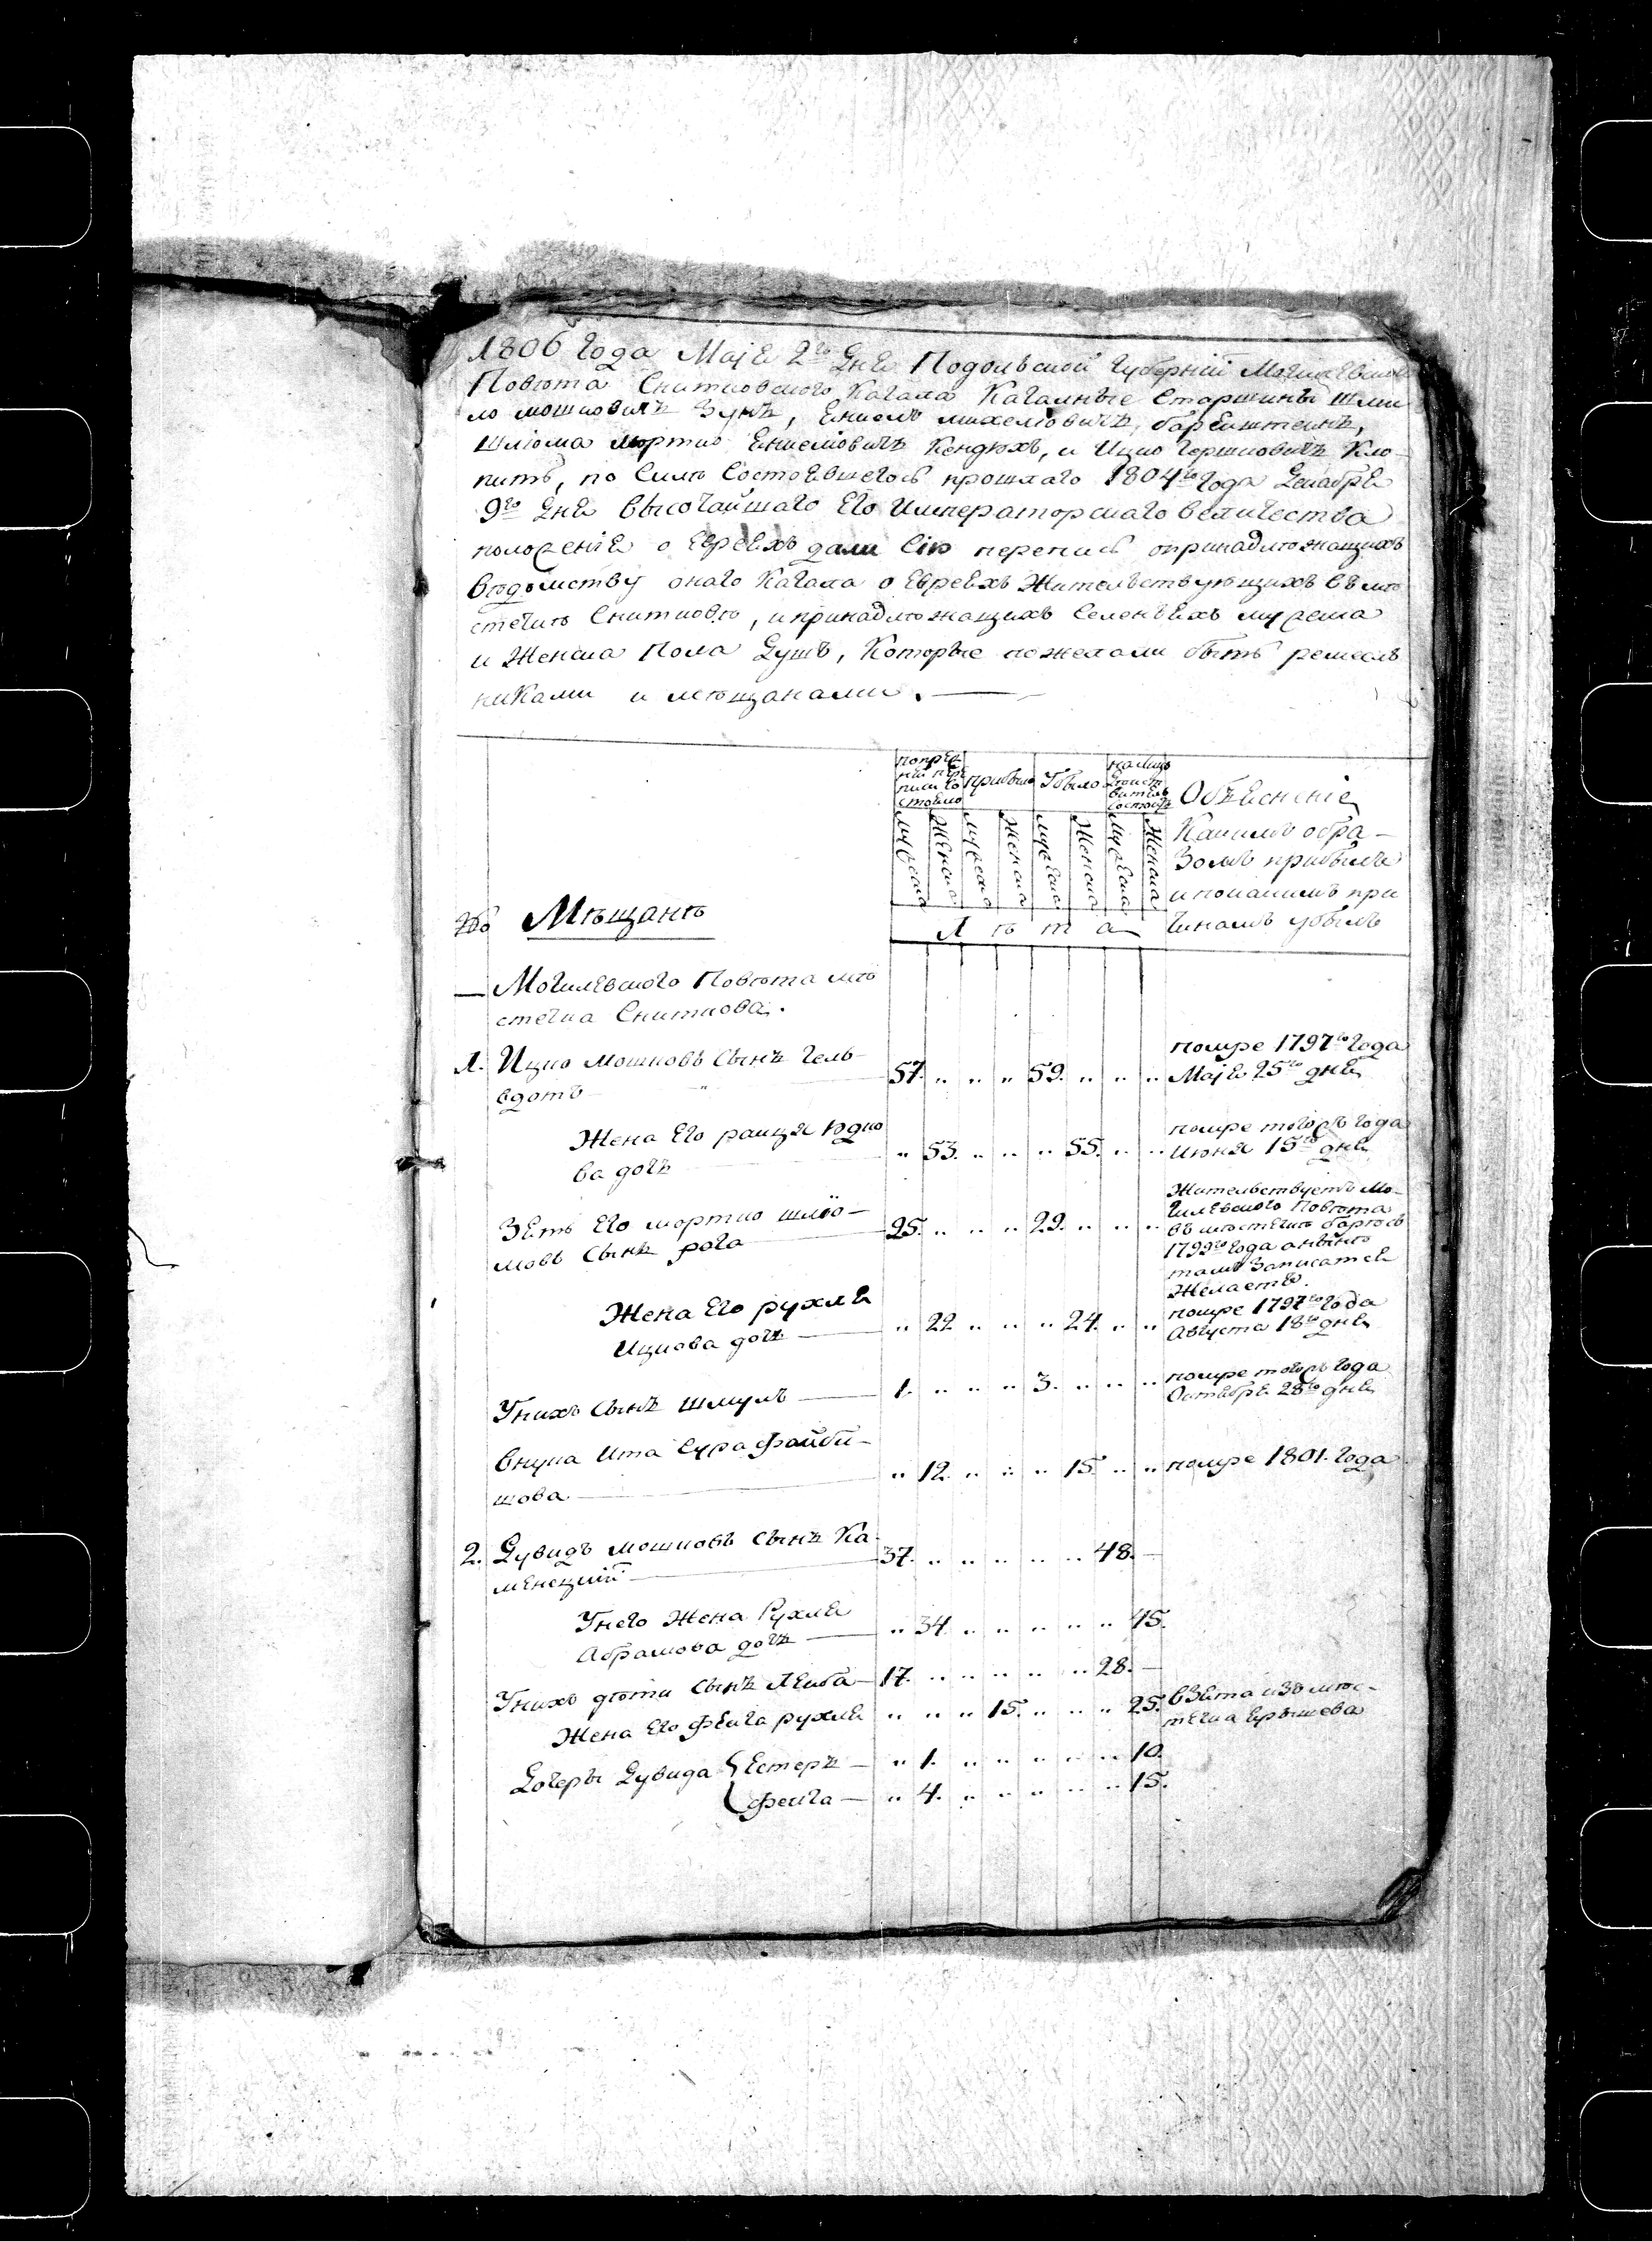 1806 Года Маiя 2го Дня Подольской Губернiй Могилевского
Повѣта Снитковского Кагала Кагалные Старшины Шмы
ло Мошковичъ Зунъ, Енкель Михелювичъ, барейштеинъ,
Шлiома мортко Енкелiовичъ Кендюхъ, и Ицко Гершковичъ Кло
питъ, по Силѣ Состоявшегось прошлаго 1804го Года Декабря
9го Дня Высочайшаго Его Императорскаго величества
положенiя о Евреяхъ дали Сiю перепись опринадлѣжащихъ
вѣдомству онаго Кагала о Евреяхъ Жительствующихъ въ мѣ
стечкѣ Снитковѣ, и принадлѣжащихъ Селенъяхъ мужеска
и Женска Пола Душъ, Которые пожелали быть ремесль
никами и мѣщанами.
попреж
ней пере
писи Со
стояло
прибыло
Убыло
на лицо
Дѣист
вителъ
Состоитъ
Объяснение
Какимъ обра-
зомъ прибыли
и покакимъ при
чинамъ убыли
мужеска Женска мужеска Женска мужеска Женска мужеска Женска
Л ѣ т а
№ Мѣщанѣ
Могилевского Повѣта мѣ
стечка Сниткова.
1. Ицко Мошковъ Сынъ Гель-
вдотъ 57. .. .. .. 59. .. .. .. помре 1797го Года
Маiя 25го дня
Жена Его раица юдко
ва дочъ .. 53. .. .. .. 55. .. .. помре тогожъ Года
Июня 15го дня
Зять Его мортко шлiо-
мовъ Сынъ рога 25. .. .. .. 29. .. .. .. Жительствуетъ Мо-
гилевского Повѣта
въ мѣстечкѣ барѣсъ
1799го Года а нынѣ
тамъ записатся
Желаетъ.
Жена Его рухля
Ицкова дочъ .. 22 .. .. .. 24. .. .. помре 1797го Года
Августа 18го дня
Унихъ Сынъ шмуль 1. .. .. .. 3. .. .. .. помре тогожъ Года
Октября 28го дня
Внука Ита Сура Файби-
шова .. 12. .. .. .. 15. .. .. помре 1801. Года
2. Дувидъ мошковъ Сынъ Ка-
менецкий 37. .. .. .. .. .. 48. —
Унего Жена Рухля
Абрамова дочъ .. 34. .. .. .. .. .. 45.
Унихъ дѣти Сынъ Леиба 17. .. .. .. .. .. 28. —
Жена Его Феига рухля .. .. .. 15. .. .. .. 25. взята изъ мѣс-
течка Ярышева
Дочеры Дувида { Естеръ — .. 1. .. .. .. .. .. 10.
Феига — .. 4. .. .. .. .. .. 15.